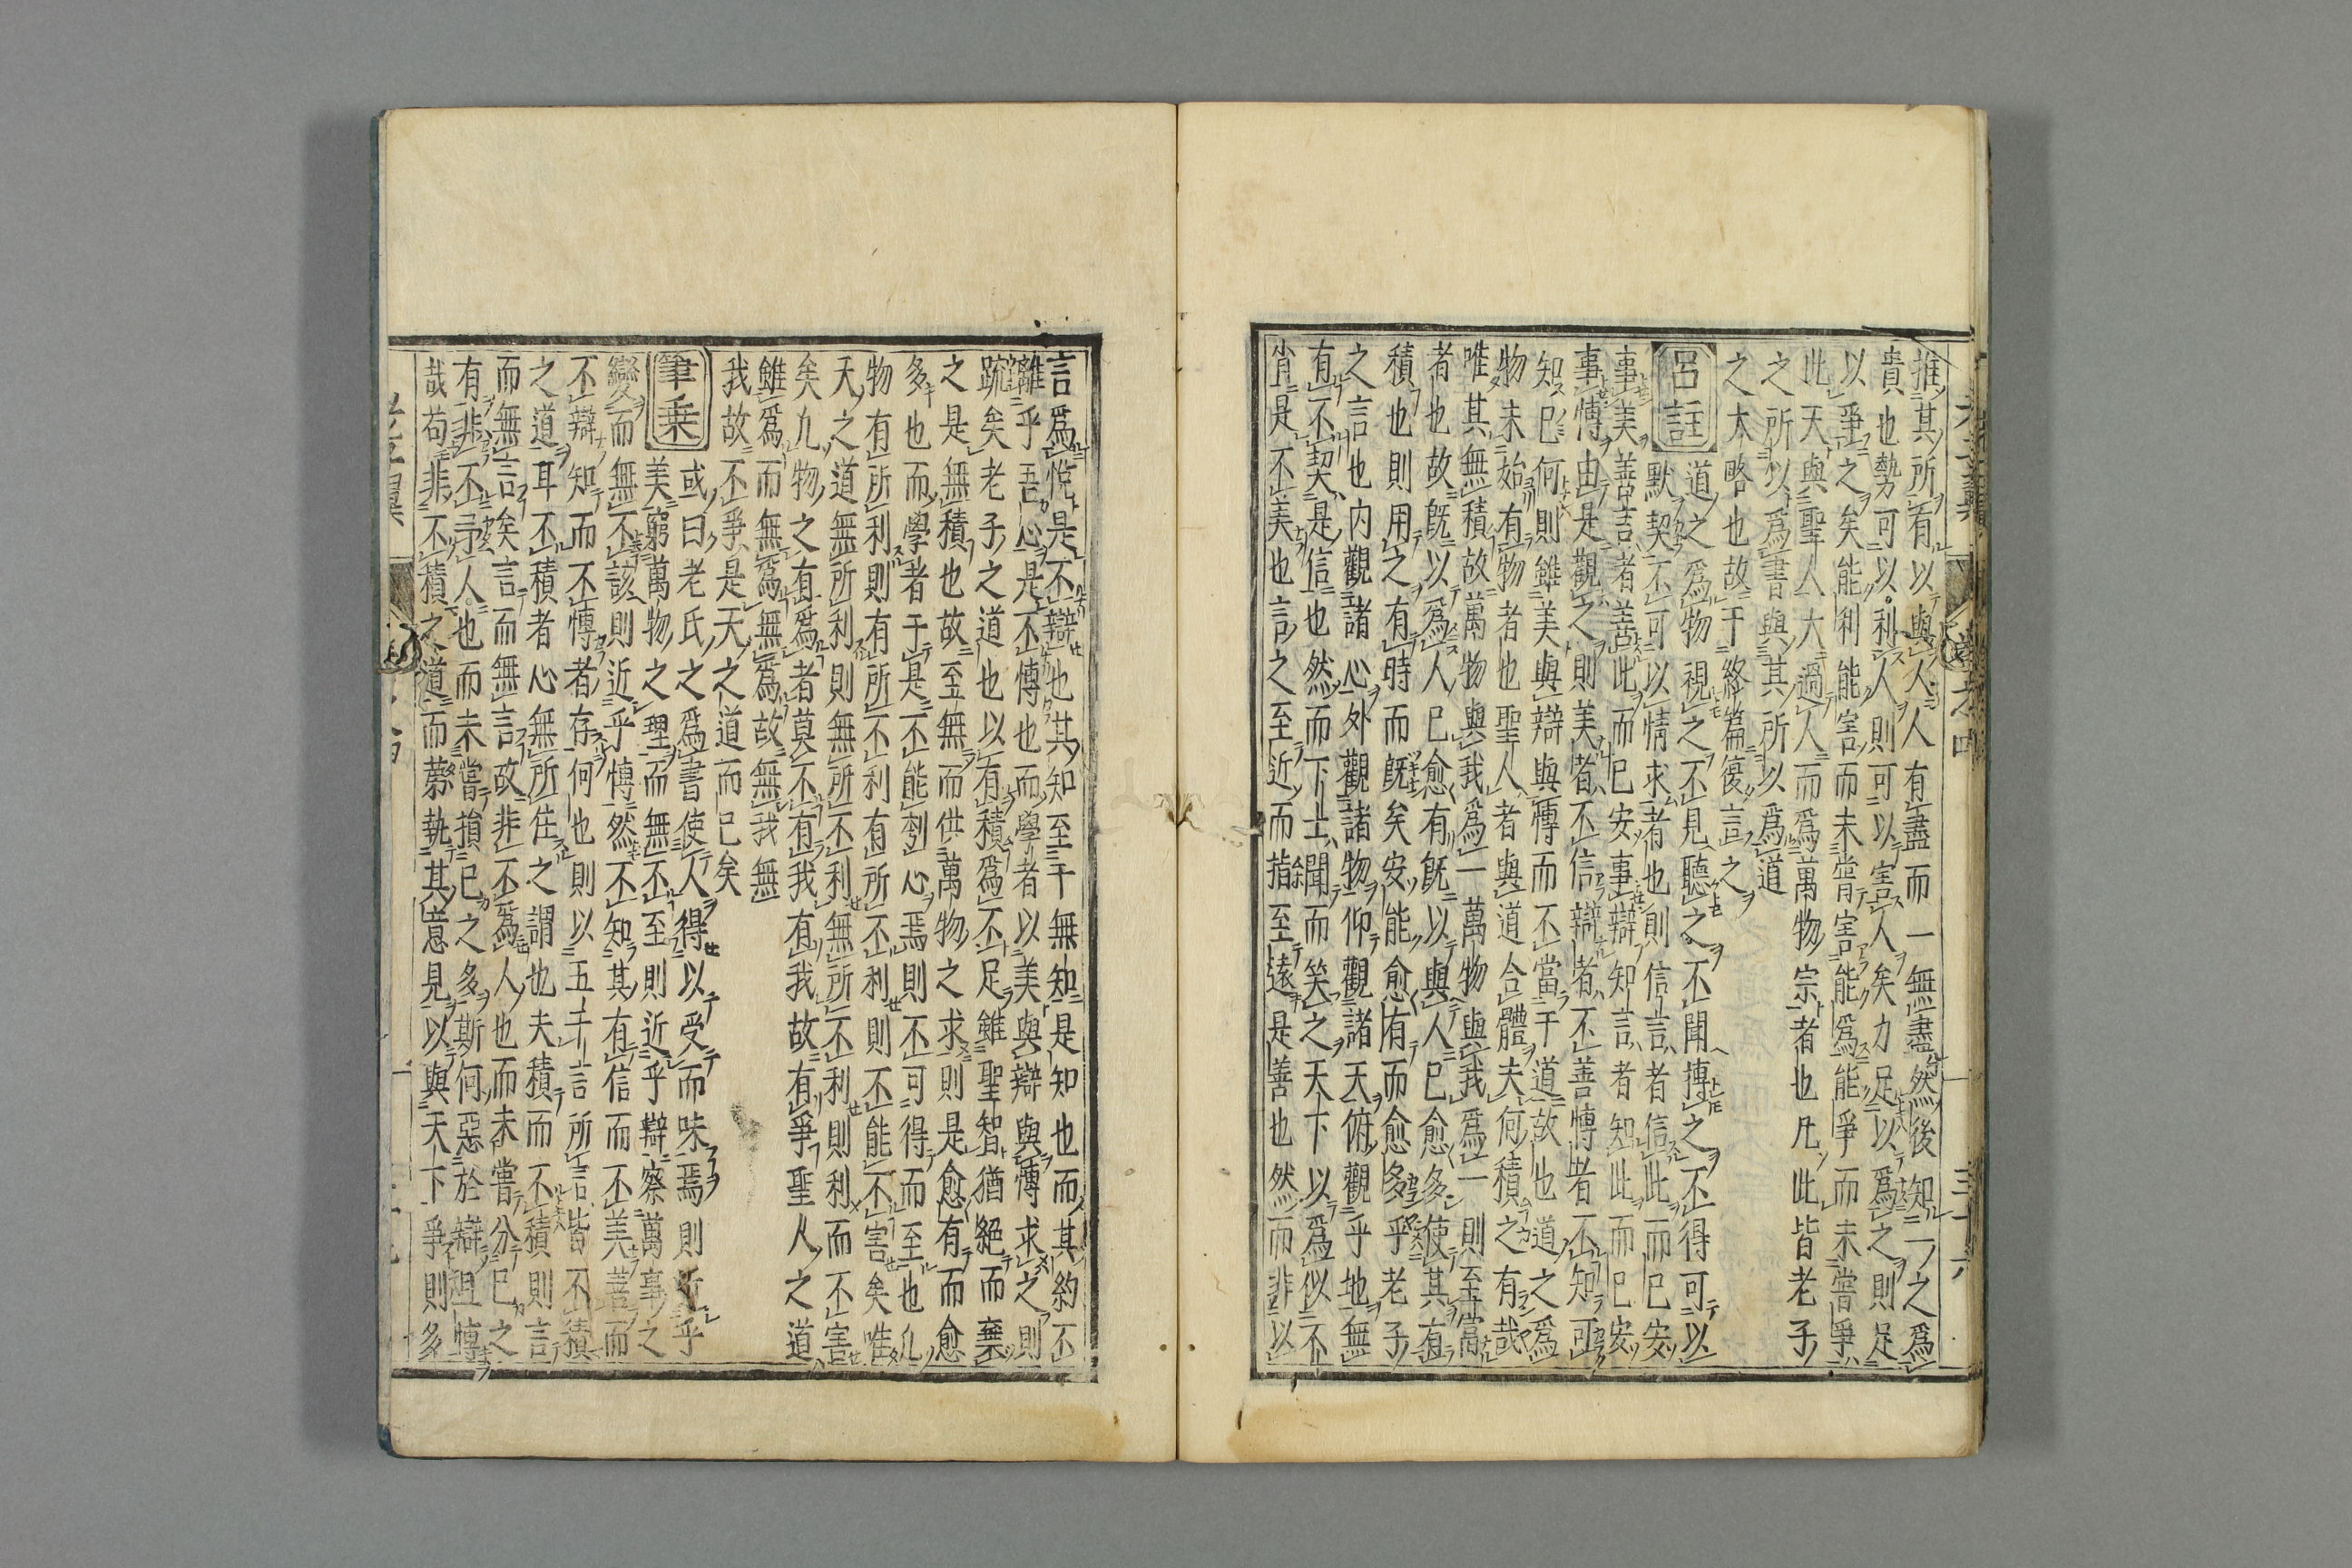 推其所有以與人人有盡而一無盡然後知一之爲
貴也勢可以利人則可以害人矣力足以爲之則足
以爭之矣能利能害而未嘗害能爲能爭而未嘗爭
此天與聖人大過人而爲萬物宗者也凡此皆老子
之所以爲書與其所以爲道
之大略也故于終篇復言之
呂註
道之爲物視之不見聽之不聞摶之不得可以
默契不可以情求者也則信言者信此而已安
事美善言者善此而已安事辯知言者知此而已安
事慱由是觀之則美者不信辯者不善慱者不知可
知已何則雖美與辯與慱而不當于道故也道之爲
物未始有物者也聖人者與道合體夫何積之有哉
唯其無積故萬物與我爲一萬物與我爲一則至富
者也故旣以爲人已愈有旣以與人已愈多使其有
積也則用之有時而旣矣安能愈有而愈多乎老子
之言也内觀諸心外觀諸物仰觀諸天俯觀乎地無
有不契是信也然而下士聞而笑之天下以爲似不
肖是不美也言之至近而指至遠是善也然而非以
言爲悅是不辯也其知至于無知是知也而其約不
離乎吾心是不慱也而學者以美與辯與慱求之則
䟽矣老子之道也以有積爲不足雖聖智猶絕而棄
之是無積也故至無而供萬物之求則是愈有而愈
多也而學者于是不能刳心焉則不可得而至也凡
物有所利則有所不利有所不利則不能不害矣唯
天之道無所利則無所不利無所不利則利而不害
矣凡物之有爲者莫不有我有我故有爭聖人之道
雖爲而無爲無爲故無我無
我故不爭是天之道而已矣
筆乗
或曰老氏之爲書使人得以受而味焉則近乎
美窮萬物之理而無不至則近乎辯察萬事之
變而無不該則近乎慱然不知其有信而不美善而
不辯知而不慱者存何也則以五千言所言皆不積
之道耳不積者心無所住之謂也夫積而不積則言
而無言矣言而無言故非不爲人也而未嘗分已之
有非不予人也而未嘗損已之多斯何惡於辯且慱
哉苟非不積之道而蔡執其意見以與天下爭則多